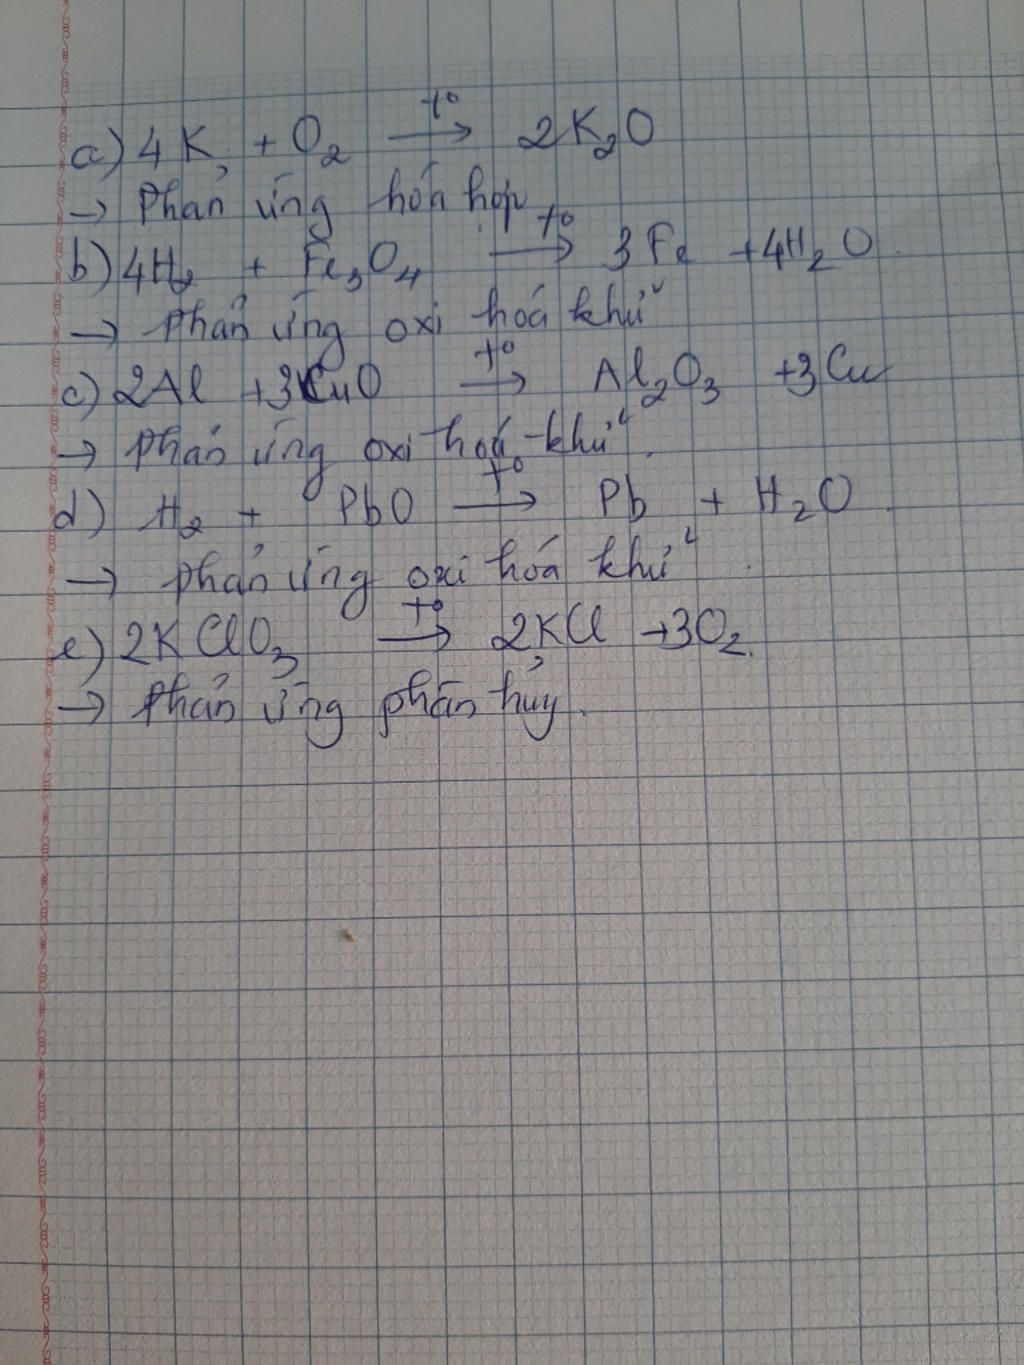 a) 4K + O₂ —t°→ 2K₂O
→ Phản ứng hóa hợp
b) 4H₂ + Fe₃O₄ —t°→ 3Fe + 4H₂O.
→ Phản ứng oxi hoá khử
c) 2Al + 3CuO —t°→ Al₂O₃ + 3Cu
→ Phản ứng oxi hoá - khử.
d) H₂ + PbO —t°→ Pb + H₂O
→ phản ứng oxi hóa khử.
e) 2KClO₃ —t°→ 2KCl + 3O₂.
→ Phản ứng phân hủy.